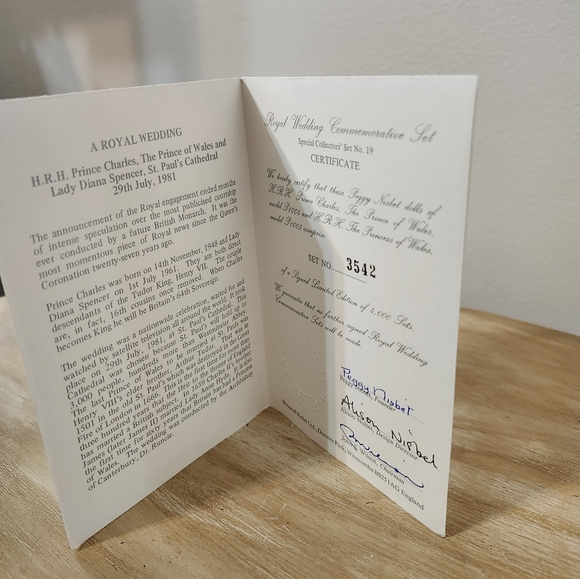 A ROYAL WEDDING
H.R.H. Prince Charles, The Prince of Wales and
Lady Diana Spencer, St. Paul's Cathedral
29th July, 1981
The announcement of the Royal engagement ended months
of intense speculation over the most publicised courtship
ever conducted by a future British Monarch. It was the
most momentous piece of Royal news since the Queen's
Coronation twenty-seven years ago.
Prince Charles was born on 14th November, 1948 and Lady
Diana Spencer on 1st July 1961. They are both direct
descendants of the Tudor King, Henry VII. The couple
are, in fact, 16th cousins once removed. When Charles
becomes King he will be Britain's 64th Sovereign.
The wedding was a nationwide celebration, waited for and
watched by satellite television all around the world. It took
place on 29th July, 1981, at St. Paul's Cathedral. This
Cathedral was chosen because St. Paul's can hold up to
3,000 people, hundreds more than Westminster Abbey.
The last Prince of Wales to be married at St. Paul's was
Henry VIII's elder brother, Arthur Tudor. That was in
1501 in the old St. Paul's which was destroyed in the Great
Fire of London in 1666. This is the first time for over three
hundred years that the heir to the throne of England
has married a British subject. In 1659 the future King
James (later James II) married Lady Anne Hyde. It is also
the first time for seventy years that Britain has had a Princess
of Wales. The wedding was conducted by the Archbishop
of Canterbury, Dr. Runcie.
Royal Wedding Commemorative Set
Special Collectors' Set No. 19
CERTIFICATE
We hereby certify that these Peggy Nisbet dolls of
H.R.H. Prince Charles, The Prince of Wales,
model P1004 and H.R.H. The Princess of Wales,
model P1005 comprise
SET NO. 3542
of a Signed Limited Edition of 4,000 Sets
We guarantee that no further signed Royal Wedding
Commemorative Sets will be made.
Peggy Nisbet
Peggy Nisbet, Founder
Alison Nisbet
Alison Nisbet, Design Director
Wilson, Chairman
House of Nisbet Ltd., Dunster Park, Winscombe BS25 1AG England